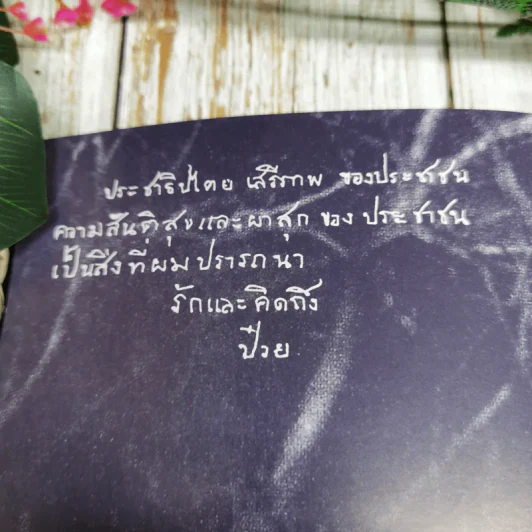 ประชาธิปไตย เสรีภาพ ของประชาชน
ความสันติสุขและผาสุก ของ ประชาชน
เป็นสิ่งที่ผมปรารถนา
รักและคิดถึง
ป๋วย